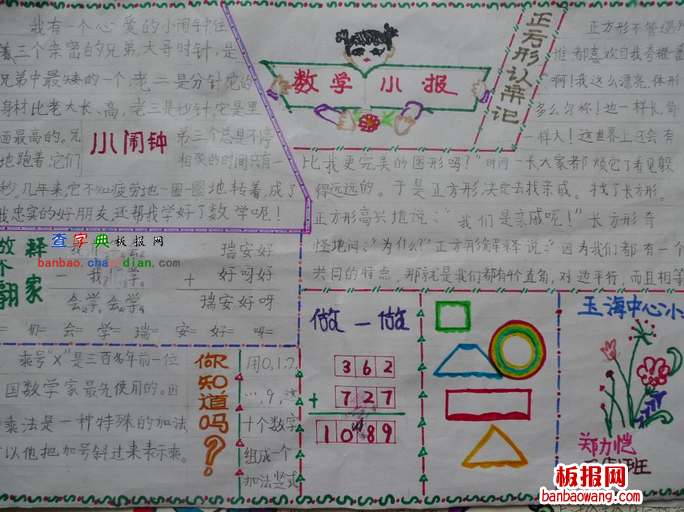 我有一个心爱的小闹钟住
着三个亲密的兄弟,大哥时针,是
兄弟中最矮的一个,老二是分针它的
身材比老大长、高,老三是秒针,它是里
面最高的。兄
弟三个总是不停
地跑着,它们
相聚的时间只有一
秒。几年来,它不知疲劳地一圈一圈地转着,成了
我忠实的好朋友,还帮我学好了数学呢!
小闹钟
数学小报
正方形认亲记
正方形不管遇
谁都喜欢自我夸耀一番
啊!我这么漂亮,体形
多么匀称!边一样长,角
一样大!这世界上还会有
比我更完美的图形吗?”时间一长大家都烦它了看见躲
得远远的。于是正方形决定去找亲戚。找了长方形。
正方形高兴地说:“我们是亲戚呢!”长方形奇
怪地问:“为什么?”正方形解释说:“因为我们都有一个
共同的特点,那就是我们都有价直角,对边平行,而且相等
释
个
翻家
查字典板报网
banbao.chazidian.com
瑞安好
- 我们学
+ 好呀好
会学会学
瑞安好呀
我= 们= 会= 学= 瑞= 安= 好= 呀=
乘号“×”是三百多年前一位
国数学家最先使用的。因
乘法是一种特殊的加法
以他把加号斜过来表示乘。
你知道吗?
用0,1,2,
…,9,这
十个数字
组成一个
加法竖式
做一做
362
+ 727
1089
玉海中心小
郑力恺
班
板报网
www.banbaowang.com